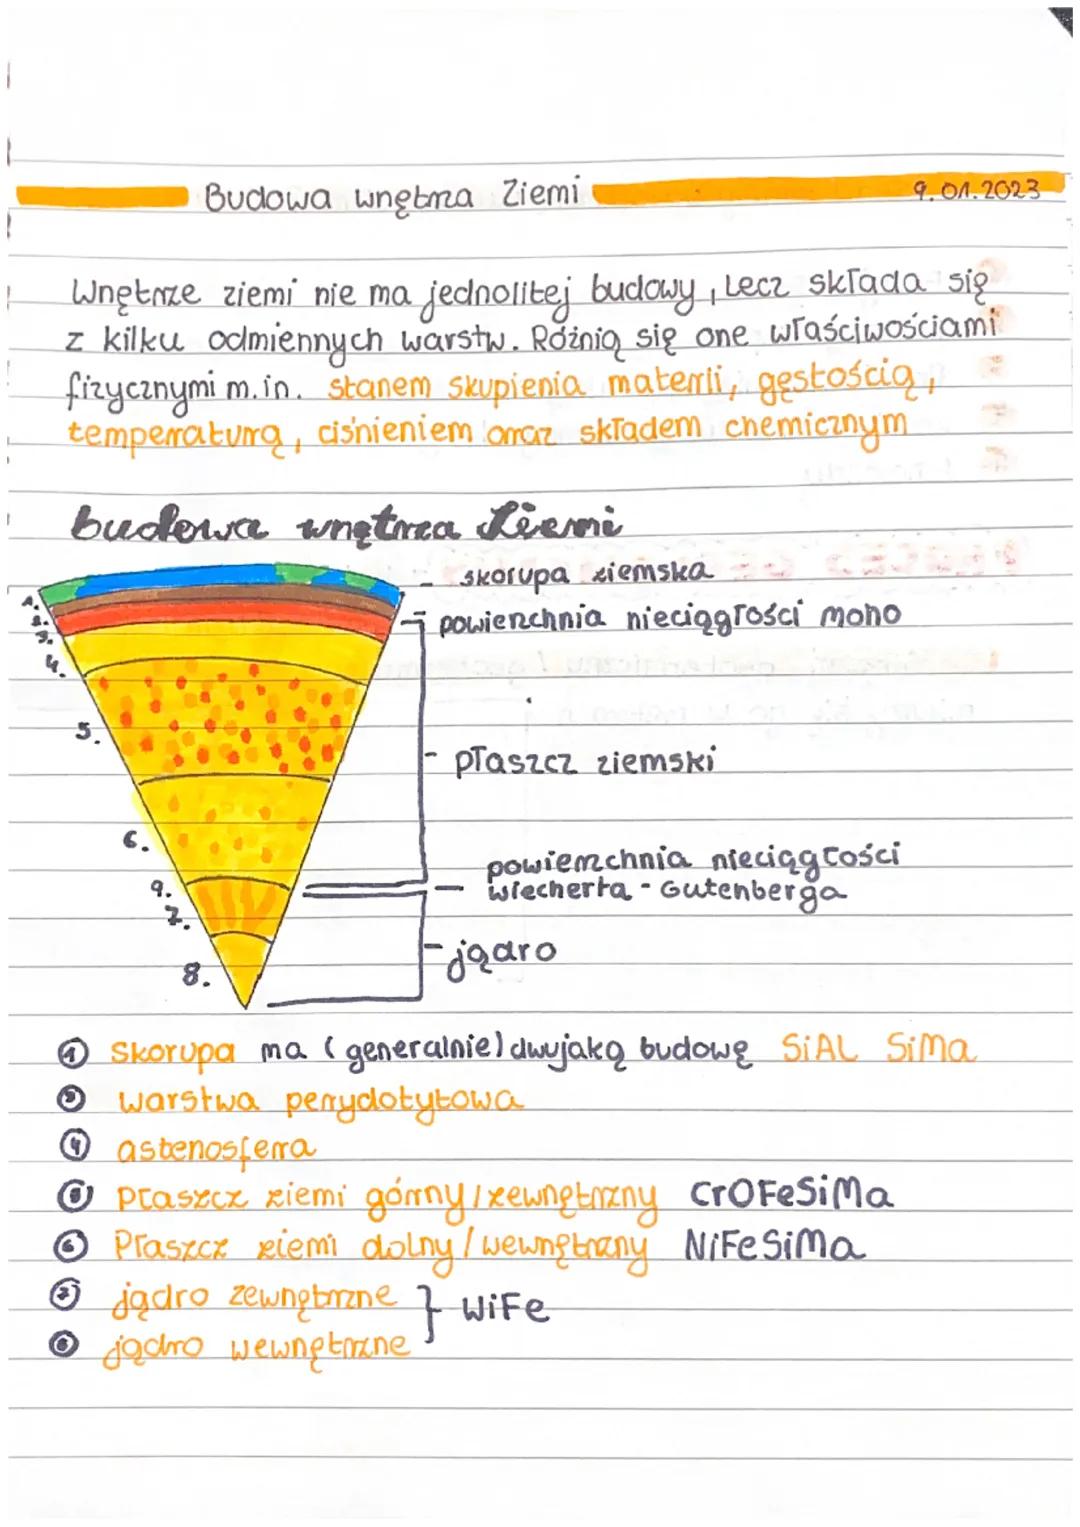 Budowa wnętrza Ziemi
9.01.2023
Wnętrze ziemi nie ma jednolitej budowy, Lecz składa się
z kilku odmiennych warstw. Różnią się one właściwościami
fizycznymi m.in. stanem skupienia materii, gęstością,
temperaturą, ciśnieniem oraz składem chemicznym
budowa wnętrza Ziemi
skorupa ziemska
powierzchnia nieciągłości moho
płaszcz ziemski
powierzchnia nieciągłości
Wiecherta - Gutenberga
jądro
1.
2.
3.
4.
5.
6.
9.
7.
8.
1 Skorupa ma (generalnie) dwujaką budowę SiAL SiMa
warstwa perydotytowa
4 astenosfera
5 płaszcz ziemi górny/zewnętrzny CrOFeSiMa
6 Płaszcz ziemi dolny/wewnętrzny NiFeSiMa
7 jądro zewnętrzne } WiFe
8 jądro wewnętrzne